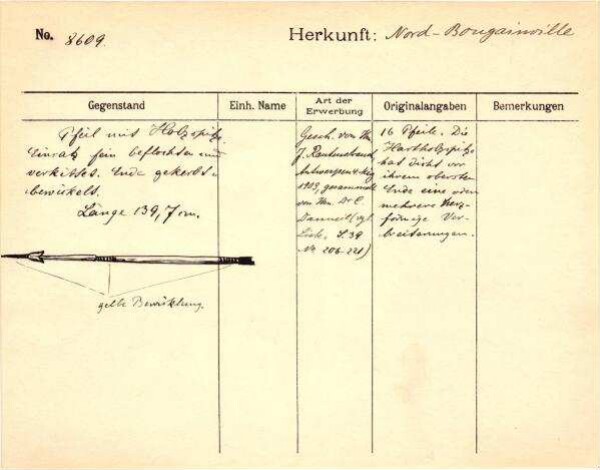 No. 8609.
Herkunft: Nord-Bougainville
Gegenstand
Einh. Name
Art der Erwerbung
Originalangaben
Bemerkungen
Pfeil mit Holzspitze.
Einsatz fein beflochten und
verkittet. Ende gekerbt u.
bewickelt.
Länge 139,7 cm.
gelbe Bewicklung.
Gesch. von Hn.
J.
1909, gesammelt
von Hn. Dr C.
(vgl.
S. 39
Nr 206-221)
16 Pfeile. Die
Hartholzspitze
hat dicht vor
ihrem obersten
Ende eine oder
mehrere
förmige Ver-
breiterungen.